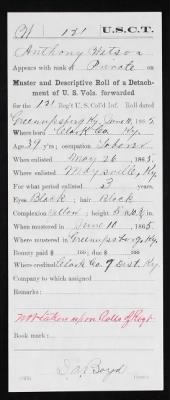 121 U.S.C.T.
Anthony
Appears with rank of Private on
Muster and Descriptive Roll of a Detach-
ment of U. S. Vols. forwarded
for the 121 Reg't U.S. Col'd Inf. Roll dated
Greenupsburg Ky, June 11, 1865.
Where born Clark Co. Ky.
Age 39 y'rs; occupation
When enlisted May 26, 1865.
Where enlisted Maysville, Ky.
For what period enlisted 3 years.
Eyes Black; hair Black
Complexion ; height 5 ft. in.
When mustered in June 10, 1865.
Where mustered in Greenupsburg, Ky.
Bounty paid $ 100; due $ 100
Where credited Clark Co. 9 Dist. Ky.
Company to which assigned
Remarks:
Not taken upon Rolls of Regt
Book mark:
Boyd